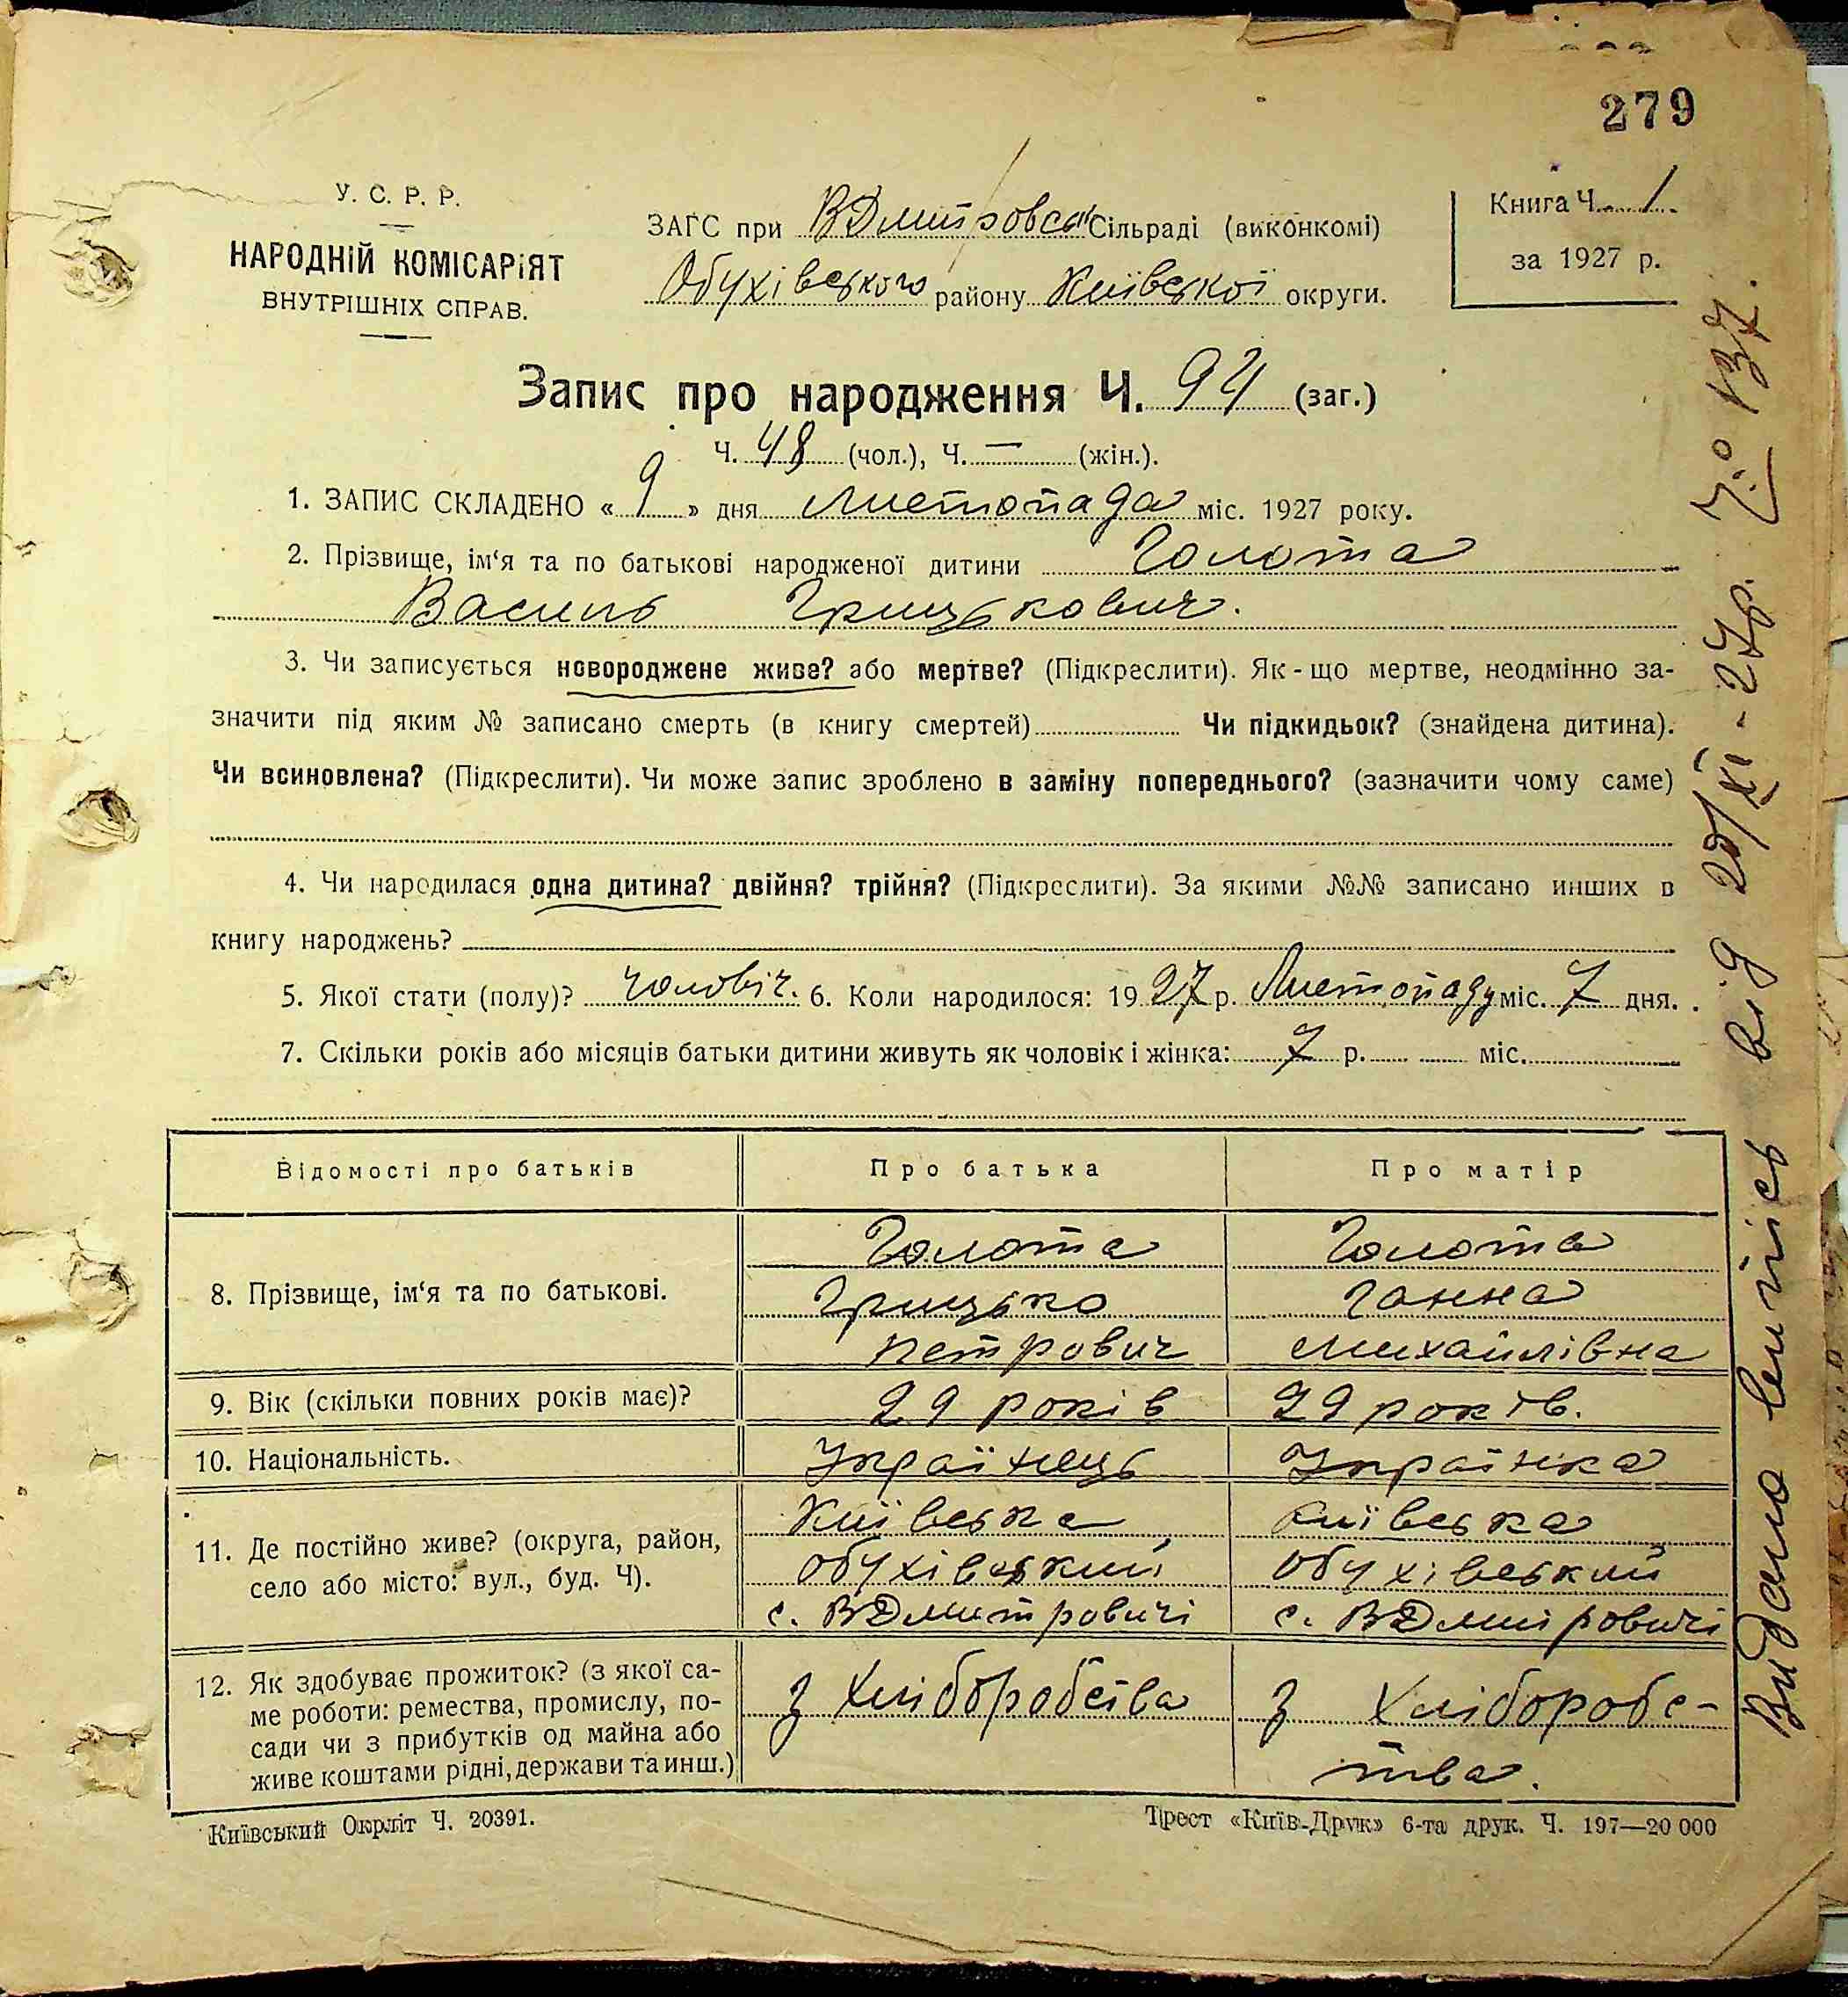 279
У. С. Р. Р.
НАРОДНІЙ КОМІСАРІЯТ
ВНУТРІШНІХ СПРАВ.
ЗАГС при ВДмитровсь Сільраді (виконкомі)
Обухівського району Київської округи.
Книга Ч. 1.
за 1927 р.
Запис про народження Ч. 94 (заг.)
Ч. 48 (чол.), Ч. — (жін.).
1. ЗАПИС СКЛАДЕНО « 9 » дня Листопада міс. 1927 року.
2. Прізвище, ім‘я та по батькові народженої дитини Голота
Василь Грицькович.
3. Чи записується новороджене живе? або мертве? (Підкреслити). Як-що мертве, неодмінно за-
значити під яким № записано смерть (в книгу смертей) Чи підкидьок? (знайдена дитина).
Чи всиновлена? (Підкреслити). Чи може запис зроблено в заміну попереднього? (зазначити чому саме)
4. Чи народилася одна дитина? двійня? трійня? (Підкреслити). За якими №№ записано инших в
книгу народжень?
5. Якої стати (полу)? чоловіч. 6. Коли народилося: 1927 р. Листопаду міс. 7 дня.
7. Скільки років або місяців батьки дитини живуть як чоловік і жінка: 7 р. міс.
Відомості про батьків Про батька Про матір
8. Прізвище, ім‘я та по батькові.
Голота
Грицько
петрович
Голота
Ганна
Михайлівна
9. Вік (скільки повних років має)? 29 років 29 років.
10. Національність. Українець Українка
11. Де постійно живе? (округа, район,
село або місто: вул., буд. Ч).
Київська
обухівський
с. ВДмитровичі
Київська
обухівський
с. ВДмитровичі
12. Як здобуває прожиток? (з якої са-
ме роботи: ремества, промислу, по-
сади чи з прибутків од майна або
живе коштами рідні, держави та инш.)
з Хліборобства
з Хліборобс-
тва.
Київський Окрліт Ч. 20391.
Трест «Київ-Друк» 6-та друк. Ч. 197—20 000
Видано випись від /XI-27р. 137.